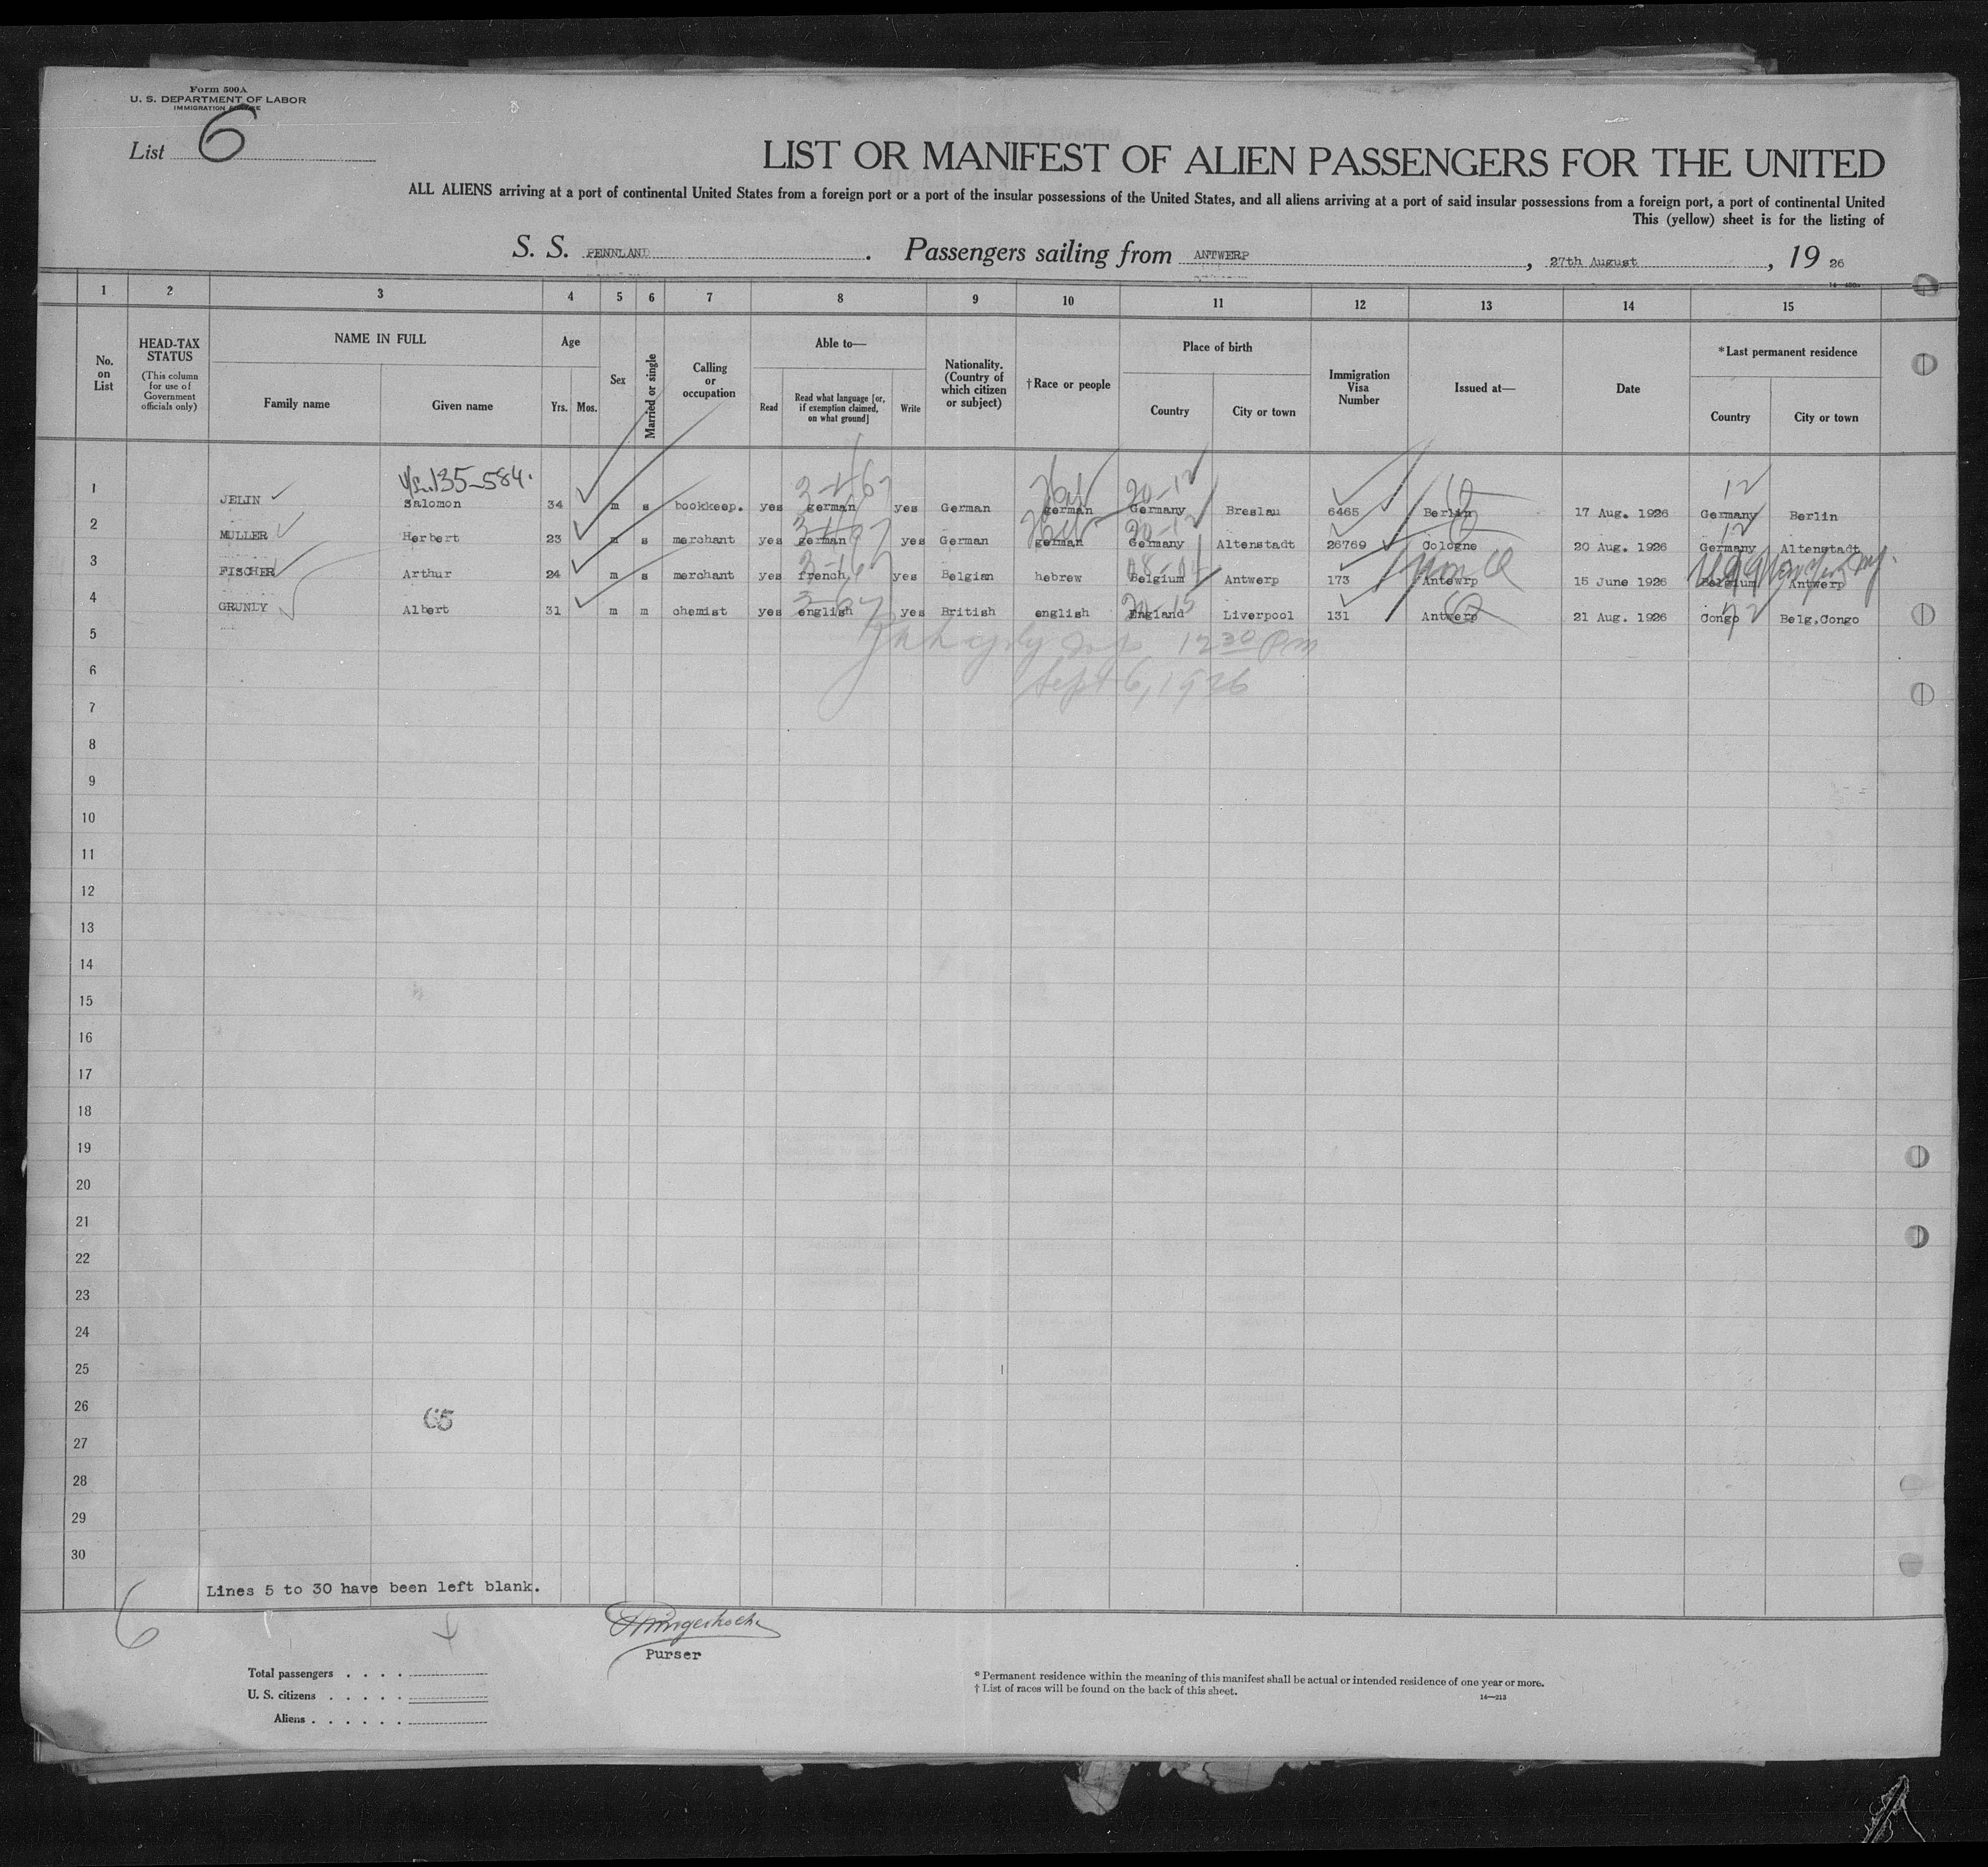 Form 500A
U. S. DEPARTMENT OF LABOR
IMMIGRATION
List 6
LIST OR MANIFEST OF ALIEN PASSENGERS FOR THE UNITED
ALL ALIENS arriving at a port of continental United States from a foreign port or a port of the insular possessions of the United States, and all aliens arriving at a port of said insular possessions from a foreign port, a port of continental United
This (yellow) sheet is for the listing of
S. S. PENNLAND . Passengers sailing from ANTWERP , 27th August , 19 26
1 2 3 4 5 6 7 8 9 10 11 12 13 14 15
No. on List
HEAD-TAX STATUS (This column for use of Government officials only)
NAME IN FULL
Family name Given name
Age
Yrs. Mos.
Sex
Married or single
Calling or occupation
Able to—
Read Read what language [or, if exemption claimed, on what ground] Write
Nationality. (Country of which citizen or subject)
†Race or people
Place of birth
Country City or town
Immigration Visa Number
Issued at—
Date
*Last permanent residence
Country City or town
135-584.
1 JELIN Salomon 34 m s bookkeep. yes german yes German german Germany Breslau 6465 Berlin 17 Aug. 1926 Germany Berlin
2 MULLER Herbert 23 m s merchant yes german yes German german Germany Altenstadt 26769 Cologne 20 Aug. 1926 Germany Altenstadt
3 FISCHER Arthur 24 m s merchant yes french yes Belgian hebrew Belgium Antwerp 173 Antewrp 15 June 1926 Belgium Antwerp
4 GRUNDY Albert 31 m m chemist yes english yes British english England Liverpool 131 Antwerp 21 Aug. 1926 Congo Belg.Congo
5
12 30 Pm
6
Sept 6, 1926
7
8
9
10
11
12
13
14
15
16
17
18
19
20
21
22
23
24
25
26
65
27
28
29
30
Lines 5 to 30 have been left blank.
6
Purser
Total passengers
U. S. citizens
Aliens
* Permanent residence within the meaning of this manifest shall be actual or intended residence of one year or more.
† List of races will be found on the back of this sheet.
14—213